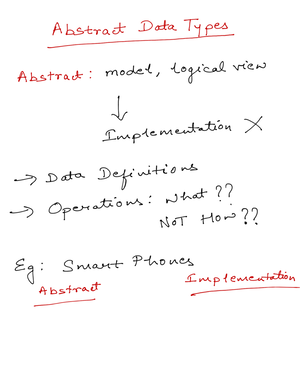 Abstract Data Types
Abstract: model, logical view
↓
Implementation X
→ Data Definitions
→ Operations: what ??
NOT How ??
Eg: Smart Phones
Abstract Implementation